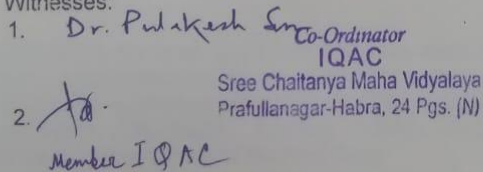 Witnesses:
1. Dr. Pulakesh Sen
Co-Ordinator
IQAC
Sree Chaitanya Maha Vidyalaya
Prafullanagar-Habra, 24 Pgs. (N)
2.
Member IQAC